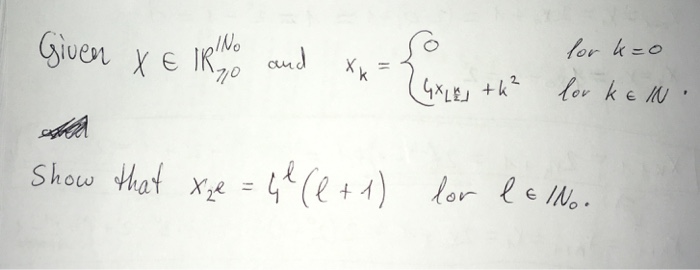 Given x ∈ ℝ^ℕ₀_≥0 and x_k = { 0 for k=0
4x_⌊k/2⌋ + k² for k ∈ ℕ.
Show that x_2^ℓ = 4^ℓ(ℓ+1) for ℓ ∈ ℕ₀.